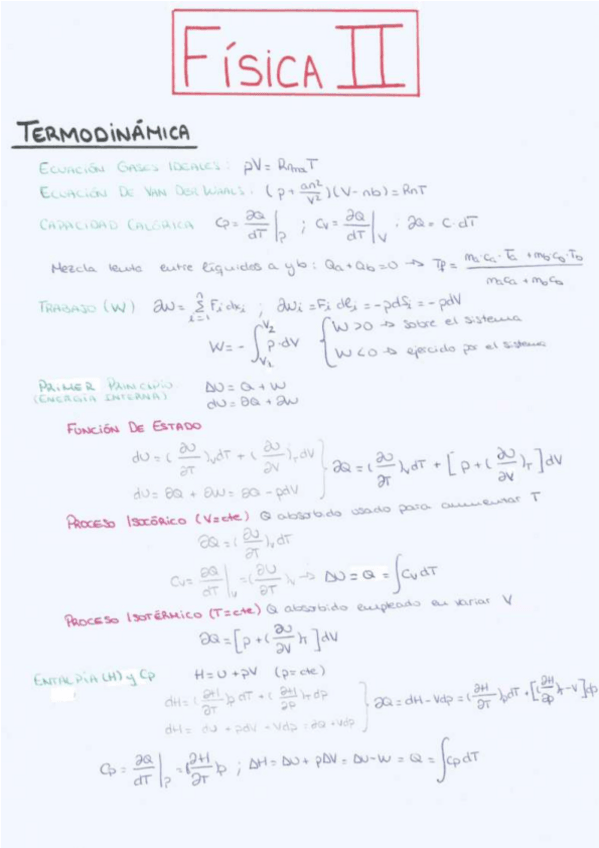 FÍSICA II
TERMODINÁMICA
ECUACIÓN GASES IDEALES: pV = RnT
ECUACIÓN DE VAN DER WAALS: (p + an²/V²)(V - nb) = RnT
CAPACIDAD CALÓRICA Cp = ∂Q/dT|p ; Cv = ∂Q/dT|V ; ∂Q = C·dT
Mezcla lenta entre líquidos a y b: Qa + Qb = 0 → Tp = (ma·Ca·Ta + mb·Cb·Tb)/(maCa + mbCb)
TRABAJO (W) ∂W = Σ(i=1, n) Fi dxi ; ∂Wi = Fi dli = -pdSi = -pdV
W = -∫(V1, V2) p·dV { W>0 → sobre el sistema
W<0 → ejercido por el sistema
PRIMER PRINCIPIO ΔU = Q + W
(ENERGÍA INTERNA) dU = ∂Q + ∂W
FUNCIÓN DE ESTADO
dU = (∂U/∂T)v dT + (∂U/∂V)T dV } ∂Q = (∂U/∂T)v dT + [p + (∂U/∂V)T] dV
dU = ∂Q + ∂W = ∂Q - pdV
PROCESO ISOCÓRICO (V=cte) Q absorbido usado para aumentar T
∂Q = (∂U/∂T)v dT
Cv = ∂Q/dT|V = (∂U/∂T)v → ΔU = Q = ∫Cv dT
PROCESO ISOTÉRMICO (T=cte) Q absorbido empleado en variar V
∂Q = [p + (∂U/∂V)T] dV
ENTALPÍA (H) y Cp H = U + pV (p=cte)
dH = (∂H/∂T)p dT + (∂H/∂p)T dp } ∂Q = dH - Vdp = (∂H/∂T)p dT + [(∂H/∂p)T - V] dp
dH = dU + pdV + Vdp = ∂Q + Vdp
Cp = ∂Q/dT|p = (∂H/∂T)p ; ΔH = ΔU + pΔV = ΔU - W = Q = ∫Cp dT